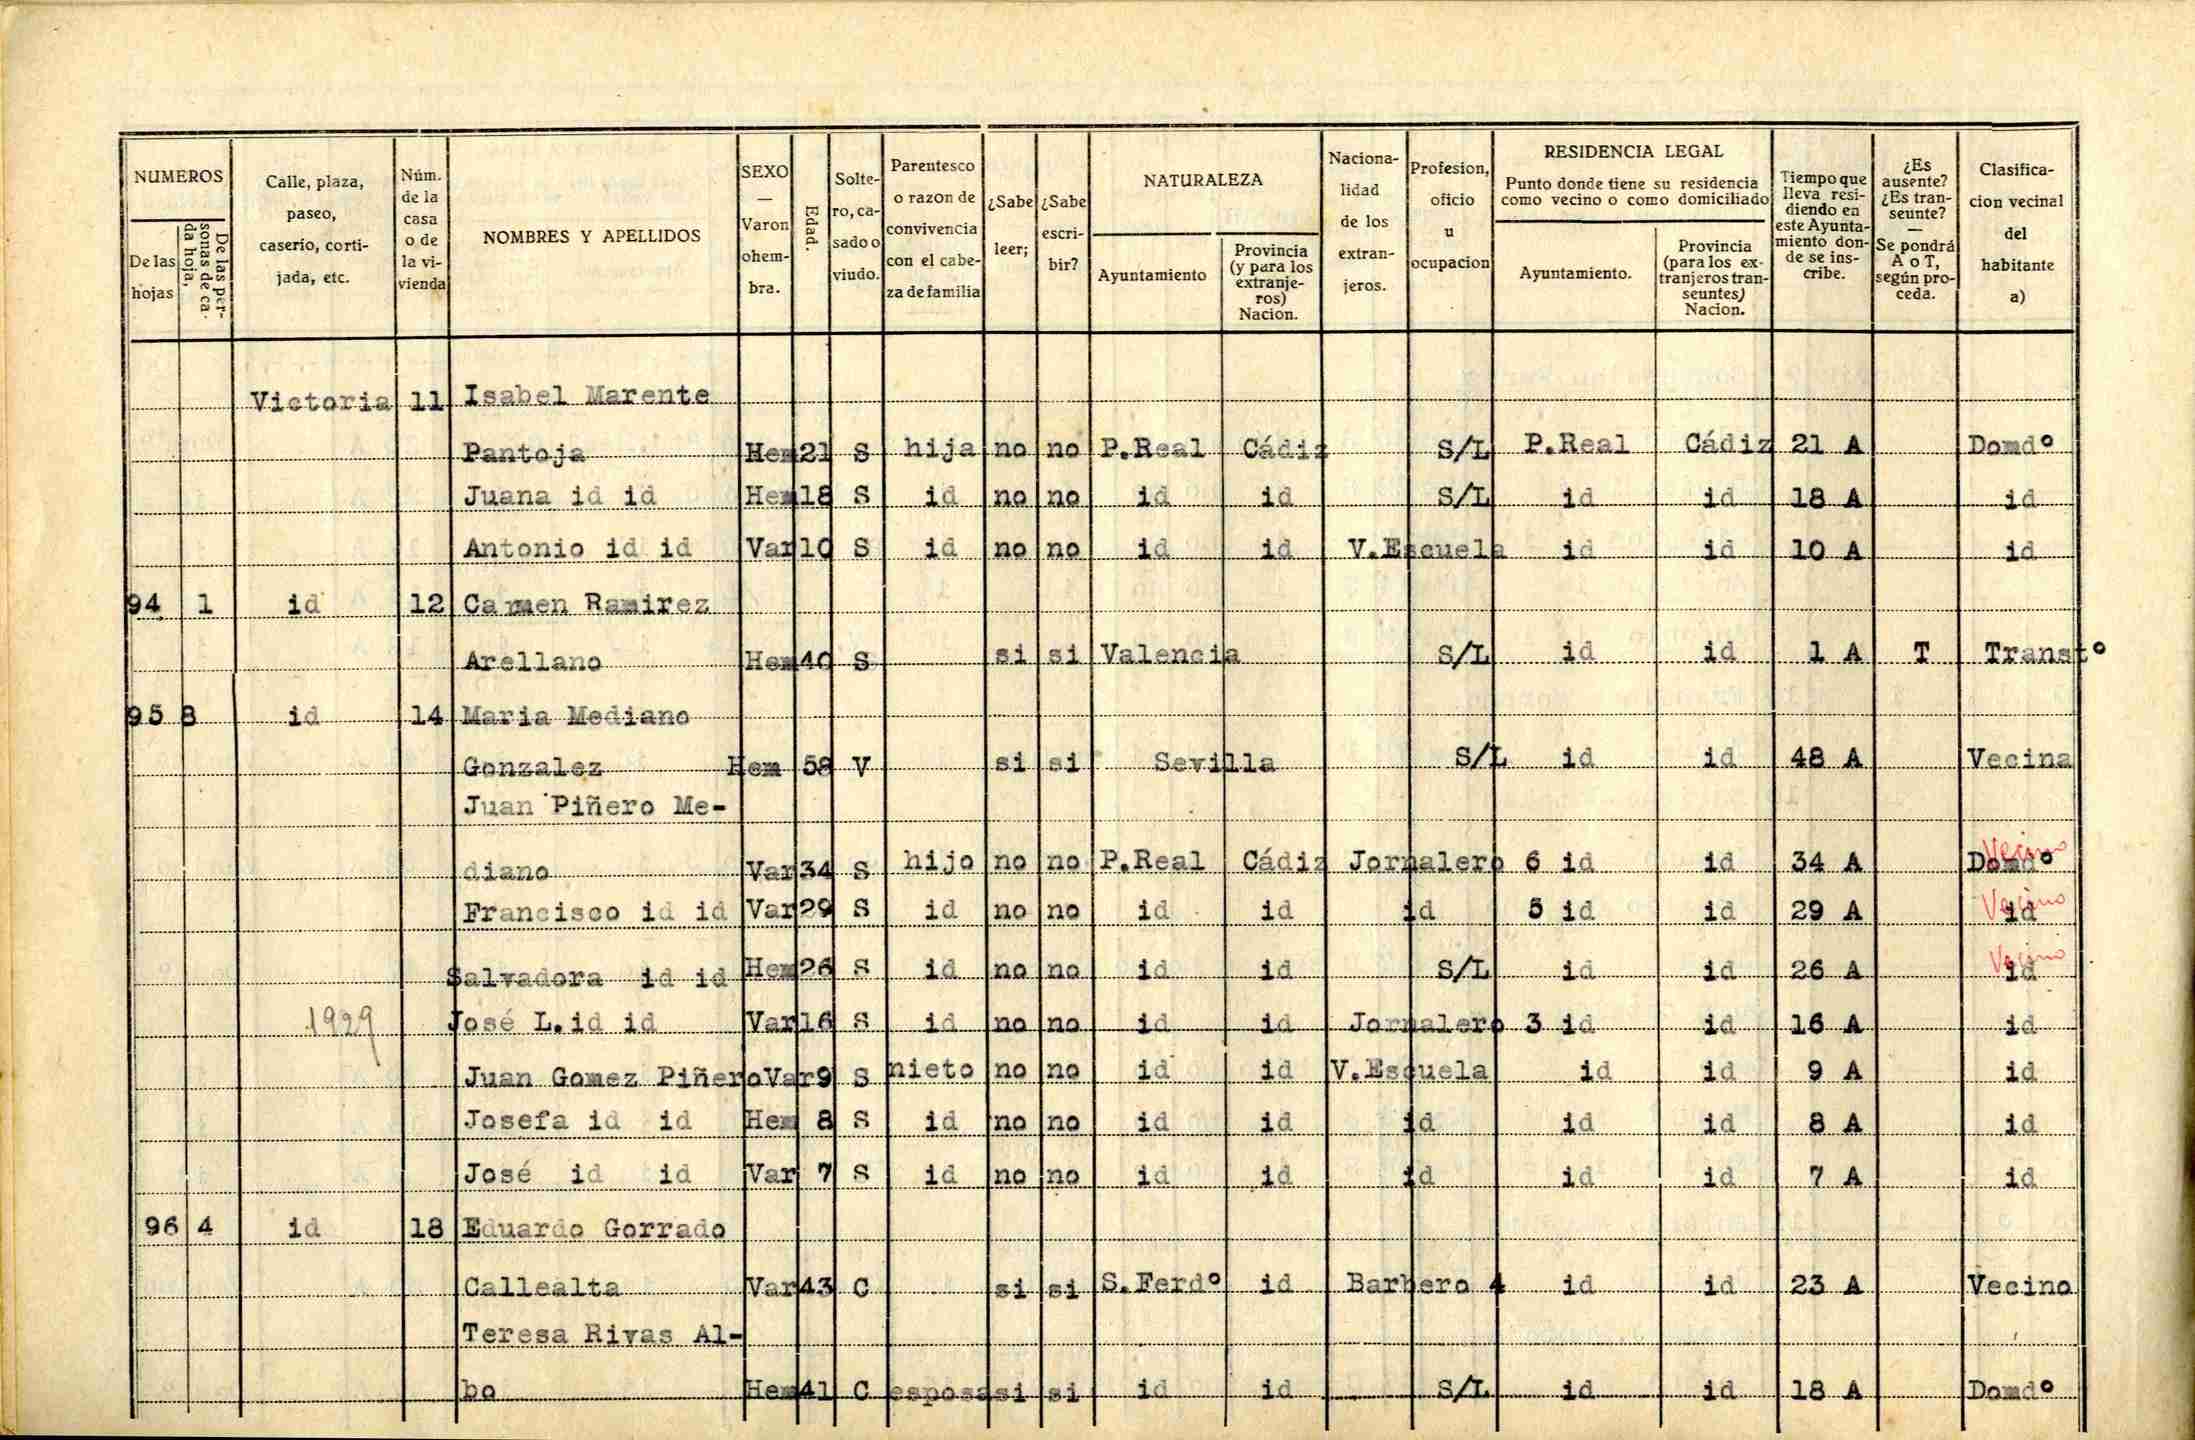 NUMEROS
De las hojas
De las personas de cada hoja,
Calle, plaza, paseo, caserio, cortijada, etc.
Núm. de la casa o de la vivienda
NOMBRES Y APELLIDOS
SEXO — Varon o hembra.
Edad.
Soltero, casado o viudo.
Parentesco o razon de convivencia con el cabeza de familia
¿Sabe leer;
¿Sabe escribir?
NATURALEZA
Ayuntamiento
Provincia (y para los extranjeros) Nacion.
Nacionalidad de los extranjeros.
Profesion, oficio u ocupacion
RESIDENCIA LEGAL
Punto donde tiene su residencia como vecino o como domiciliado
Ayuntamiento.
Provincia (para los extranjeros transeuntes) Nacion.
Tiempo que lleva residiendo en este Ayuntamiento donde se inscribe.
¿Es ausente? ¿Es transeunte? — Se pondrá A o T, según proceda.
Clasificacion vecinal del habitante a)
Victoria 11 Isabel Marente
Pantoja Hem 21 S hija no no P.Real Cádiz S/L P.Real Cádiz 21 A Domdº
Juana id id Hem 18 S id no no id id S/L id id 18 A id
Antonio id id Var 10 S id no no id id V.Escuela id id 10 A id
94 1 id 12 Carmen Ramirez
Arellano Hem 40 S si si Valencia S/L id id 1 A T Transtº
95 8 id 14 Maria Mediano
Gonzalez Hem 58 V si si Sevilla S/L id id 48 A Vecina
Juan Piñero Me-
diano Var 34 S hijo no no P.Real Cádiz Jornalero 6 id id 34 A Domdº Vecino
Francisco id id Var 29 S id no no id id id 5 id id 29 A id Vecino
Salvadora id id Hem 26 S id no no id id S/L id id 26 A id Vecino
1929 José L. id id Var 16 S id no no id id Jornalero 3 id id 16 A id
Juan Gomez Piñero Var 9 S nieto no no id id V.Escuela id id 9 A id
Josefa id id Hem 8 S id no no id id id id id 8 A id
José id id Var 7 S id no no id id id id id 7 A id
96 4 id 18 Eduardo Gorrado
Callealta Var 43 C si si S.Ferdº id Barbero 4 id id 23 A Vecino
Teresa Rivas Al-
bo Hem 41 C esposa si si id id S/L id id 18 A Domdº